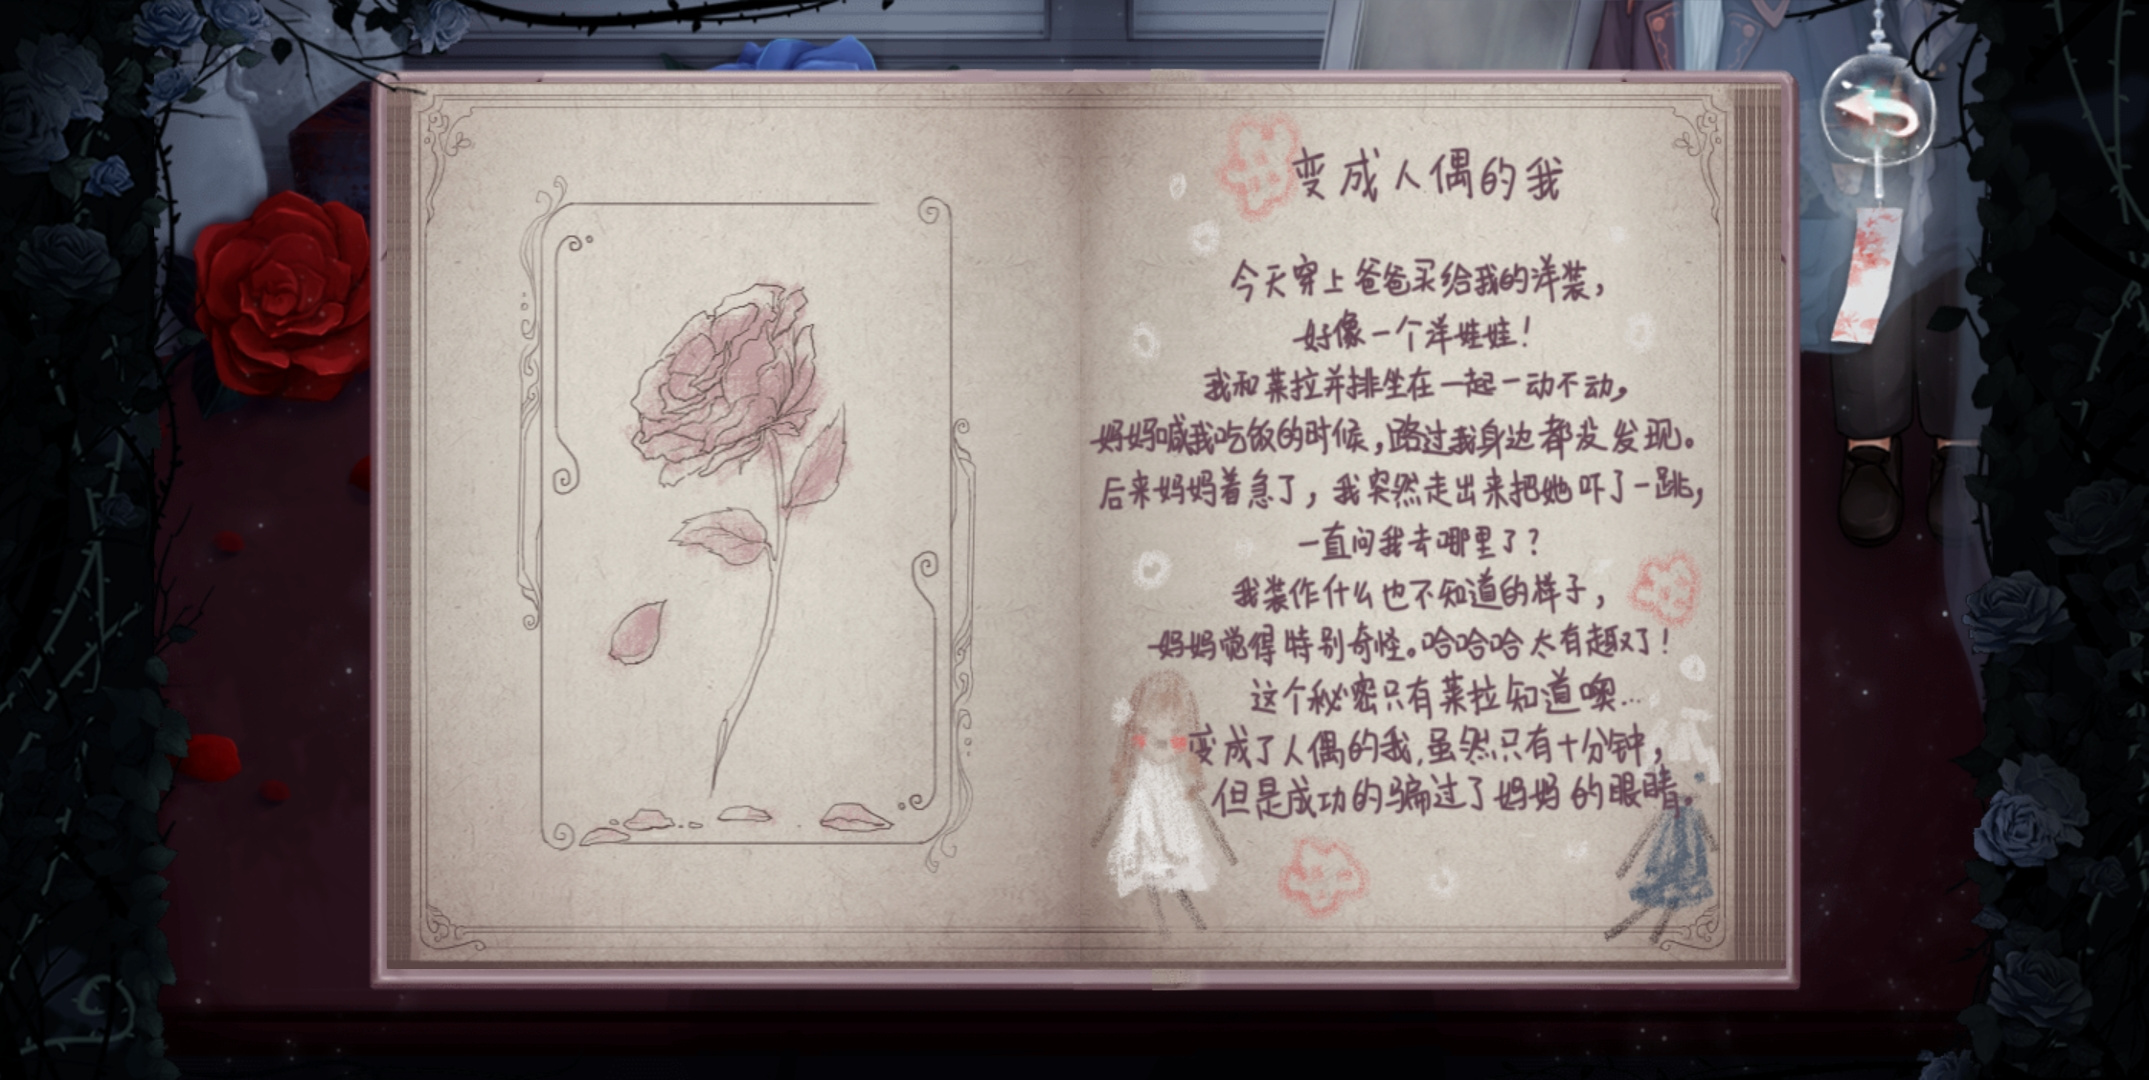 变成人偶的我
今天穿上爸爸买给我的洋装，
好像一个洋娃娃！
我和莱拉并排坐在一起一动不动，
妈妈喊我吃饭的时候，路过我身边都没发现。
后来妈妈着急了，我突然走出来把她吓了一跳，
一直问我去哪里了？
我装作什么也不知道的样子，
妈妈觉得特别奇怪。哈哈哈太有趣了！
这个秘密只有莱拉知道噢…
变成了人偶的我，虽然只有十分钟，
但是成功的骗过了妈妈的眼睛。